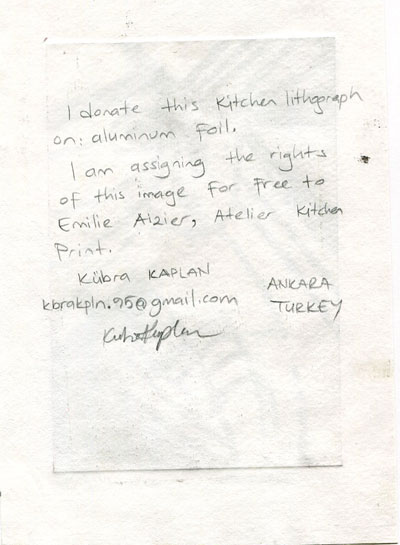 I donate this Kitchen lithgoraph
on: aluminum foil.
I am assigning the rights
of this image for free to
Emilie Aizier, Atelier Kitchen
Print.
Kübra KAPLAN
kbrakpln.95@gmail.com
ANKARA
TURKEY
Kübra Kaplan